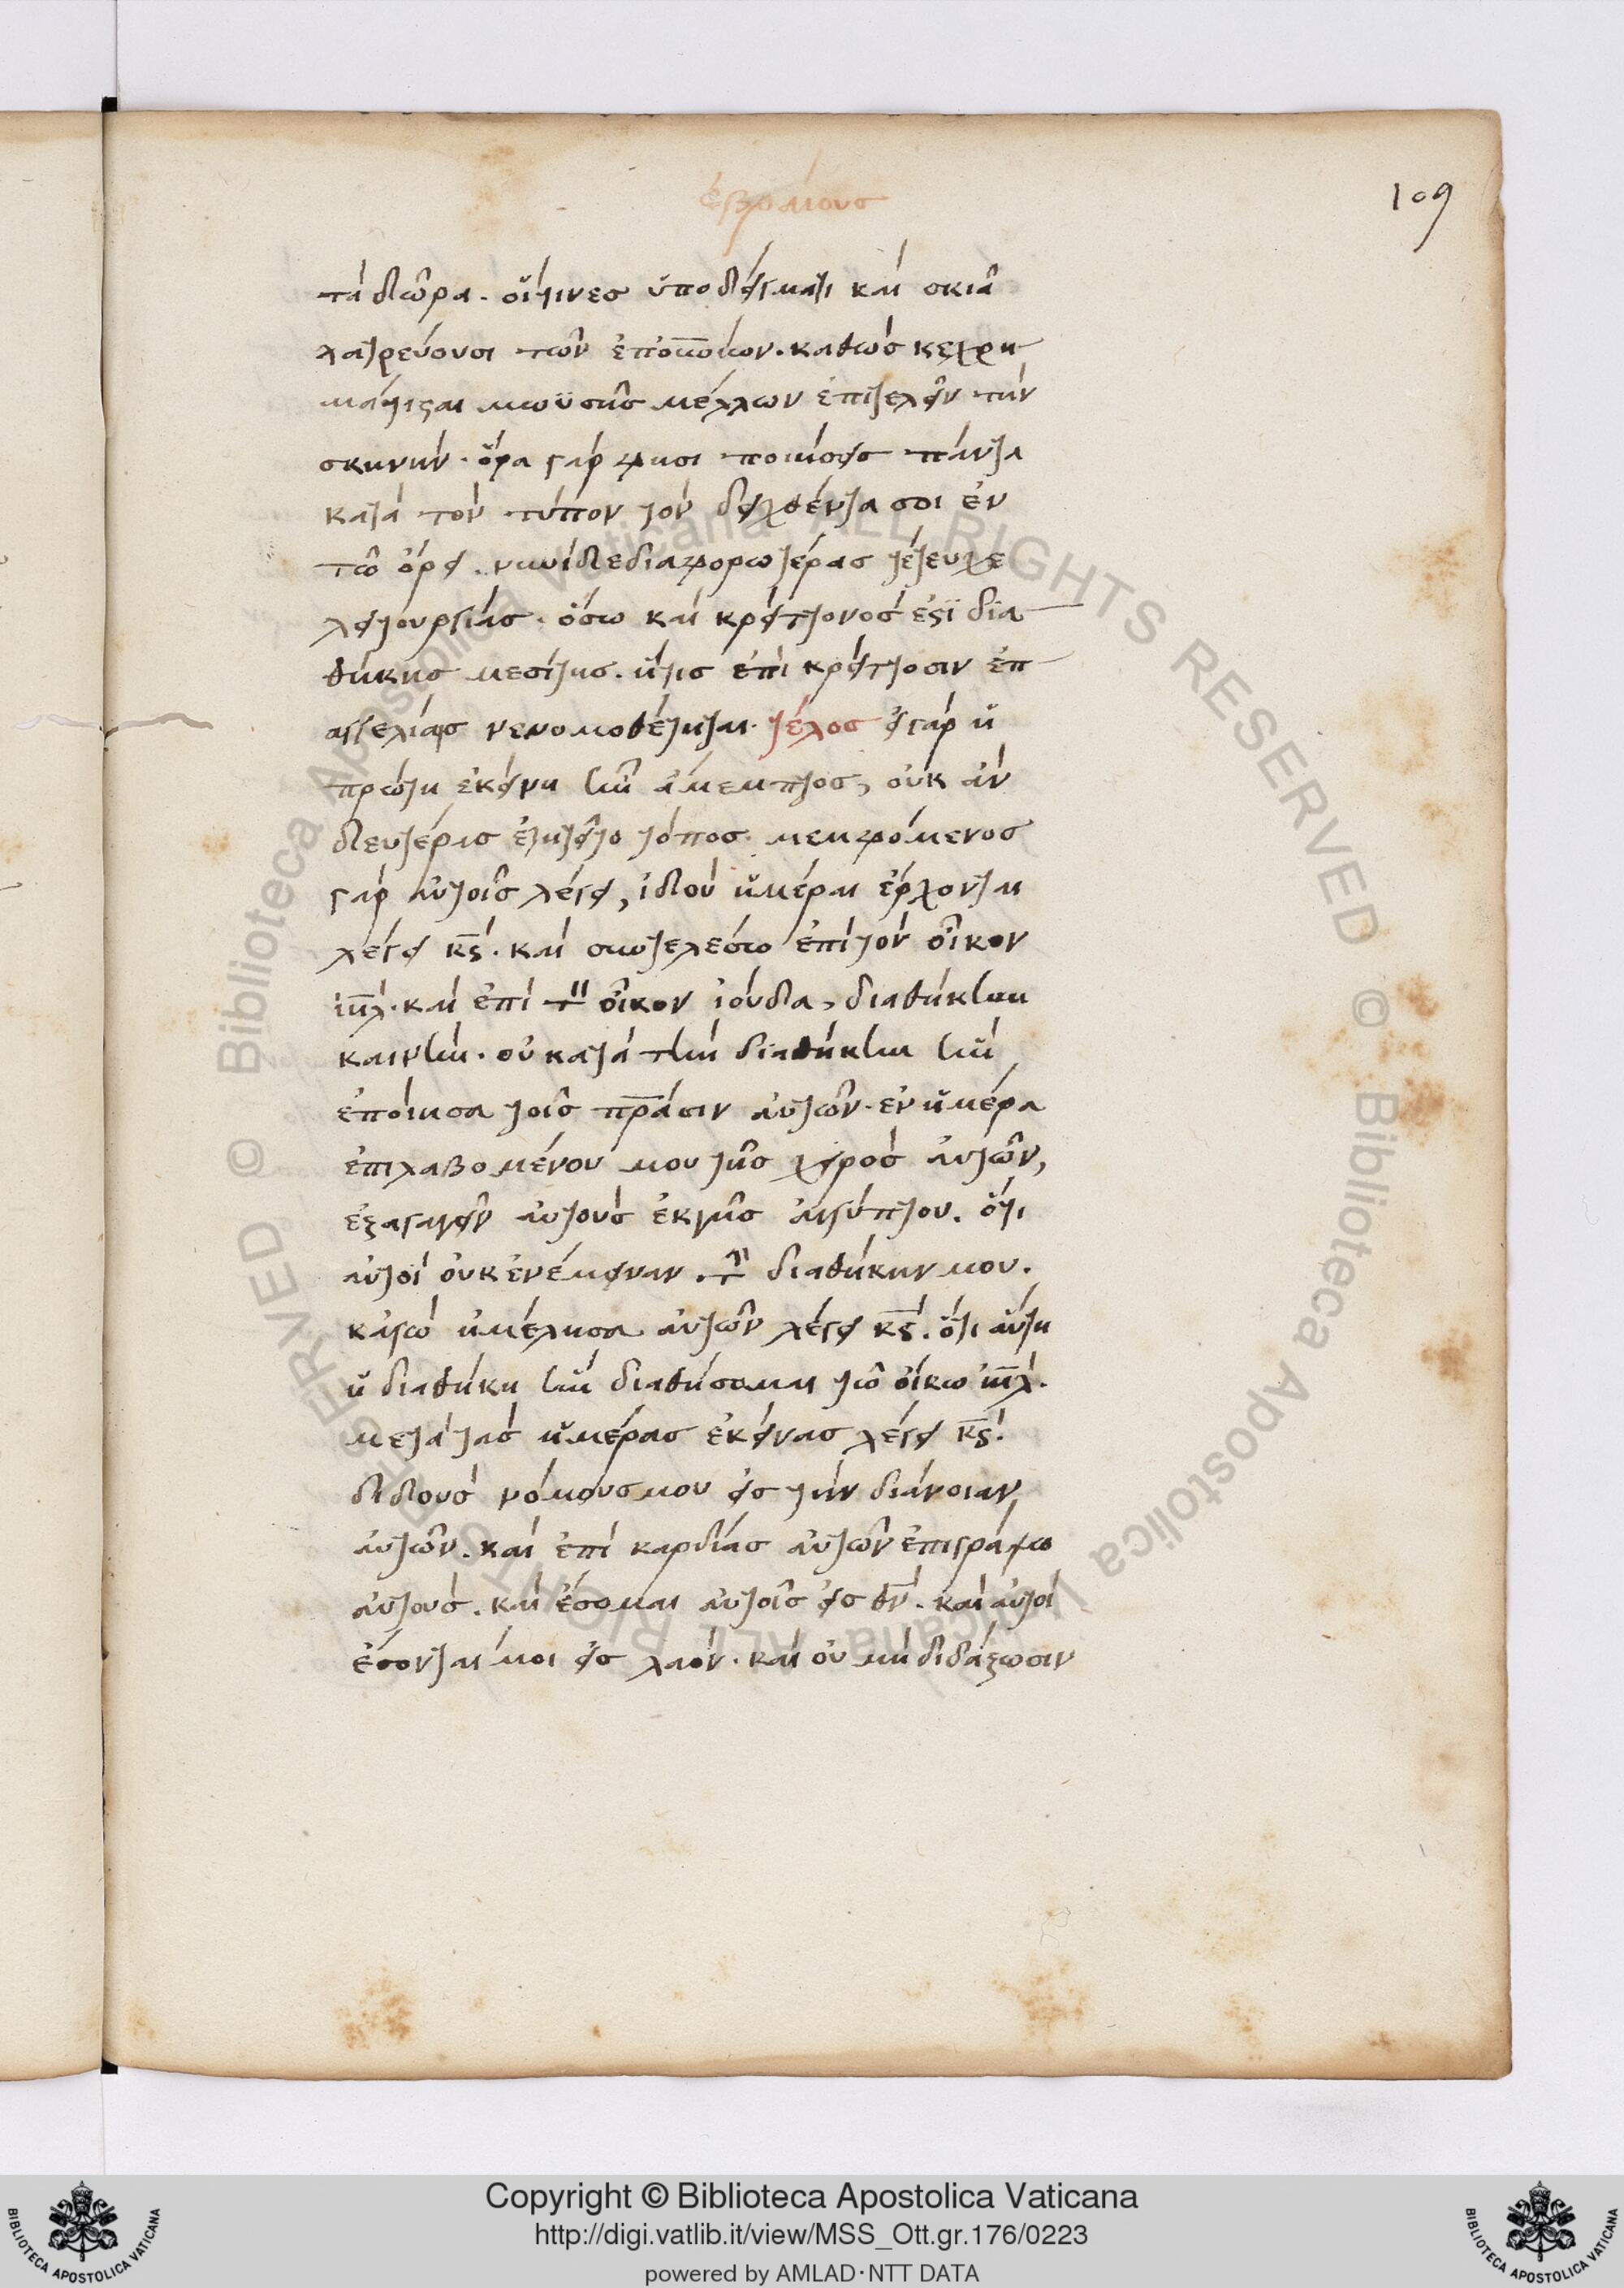 ἑβραίους
109
τὰ δῶρα. οἵτινες ὑποδείγματι καὶ σκιᾶ
λατρεύουσι τῶν ἐπουνίων. καθὼς κεχρη
μάτισται μωϋσῆς μέλλων ἐπιτελεῖν τὴν
σκηνήν. ὅρα γάρ φησι ποιήσεις πάντα
κατὰ τὸν τύπον τὸν δειχθέντα σοι ἐν
τῶ ὄρει. νυνὶ δὲ διαφορωτέρας τέτευχε
λειτουργίας. ὅσω καὶ κρείττονός ἐστϊ δϊα
θήκης μεσίτης. ἥτις ἐπὶ κρείττοσιν ἐπ
αγγελίαις νενομοθέτηται. τέλος εἰ γὰρ ἡ
πρώτη ἐκείνη ἦν ἄμεμπτος, οὐκ ἂν
δευτέρας ἐζητεῖτο τόπος. μεμφόμενος
γὰρ αὐτοῖς λέγει, ἰδοὺ ἡμέραι ἔρχονται
λέγει κς. καὶ συντελέσω ἐπὶ τὸν οἶκον
ιηλ. καὶ ἐπὶ τὸν οἶκον ἰούδα, διαθήκην
καινήν. οὐ κατὰ τὴν διαθήκην ἣν
ἐποίησα τοῖς πράσιν αὐτῶν. ἐν ἡμέρα
ἐπιλαβομένου μου τῆς χειρὸς αὐτῶν,
ἐξαγαγεῖν αὐτοὺς ἐκ γῆς αἰγύπτου. ὅτι
αὐτοὶ οὐκ ἐνέμειναν. τῆ διαθήκην μου.
κἀγὼ ἠμέλησα αὐτῶν λέγει κς. ὅτι αὕτη
ἡ διαθήκη ἣν διαθήσομαι τῶ οἴκω ιηλ.
μετὰ τὰς ἡμέρας ἐκείνας λέγει κς.
διδοὺς νόμους μου εἰς τὴν διάνοιαν
αὐτῶν. καὶ ἐπὶ καρδίας αὐτῶν ἐπιγράψω
αὐτούς. καὶ ἔσομαι αὐτοῖς εἰς θν. καὶ αὐτοὶ
ἔσονταί μοι εἰς λαόν. καὶ οὐ μὴ διδάξωσιν
Copyright © Biblioteca Apostolica Vaticana
http://digi.vatlib.it/view/MSS_Ott.gr.176/0223
powered by AMLAD·NTT DATA
BIBLIOTECA APOSTOLICA VATICANA
BIBLIOTECA APOSTOLICA VATICANA
© Biblioteca Apostolica Vaticana ALL RIGHTS RESERVED
© Biblioteca Apostolica Vaticana ALL RIGHTS RESERVED